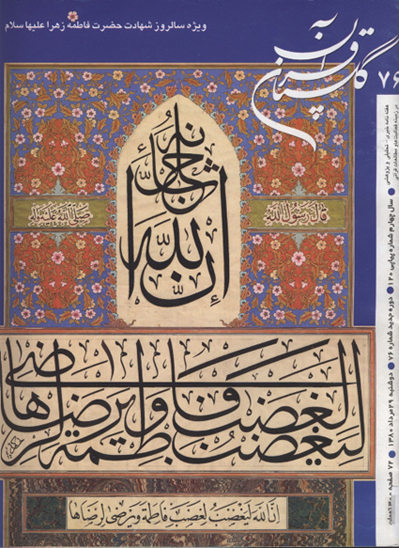 ویژه سالروز شهادت حضرت فاطمه زهرا علیها سلام
گلستان قرآن
۷۶
هفته نامه خبری - تحلیلی و پژوهشی
در زمینه فعالیت‌ها و مطالعات قرآنی
سال چهارم شماره پیاپی ۱۲۰ ● دوره جدید شماره ۷۶ ● دوشنبه ۲۹ مرداد ۱۳۸۰ ● ۷۲ صفحه
قال رسول الله
صلی الله علیه وآله
ان الله جل ثناؤه
لیغضب لغضب فاطمة ویرضی لرضاها
ان الله لیغضب لغضب فاطمة ویرضی لرضاها